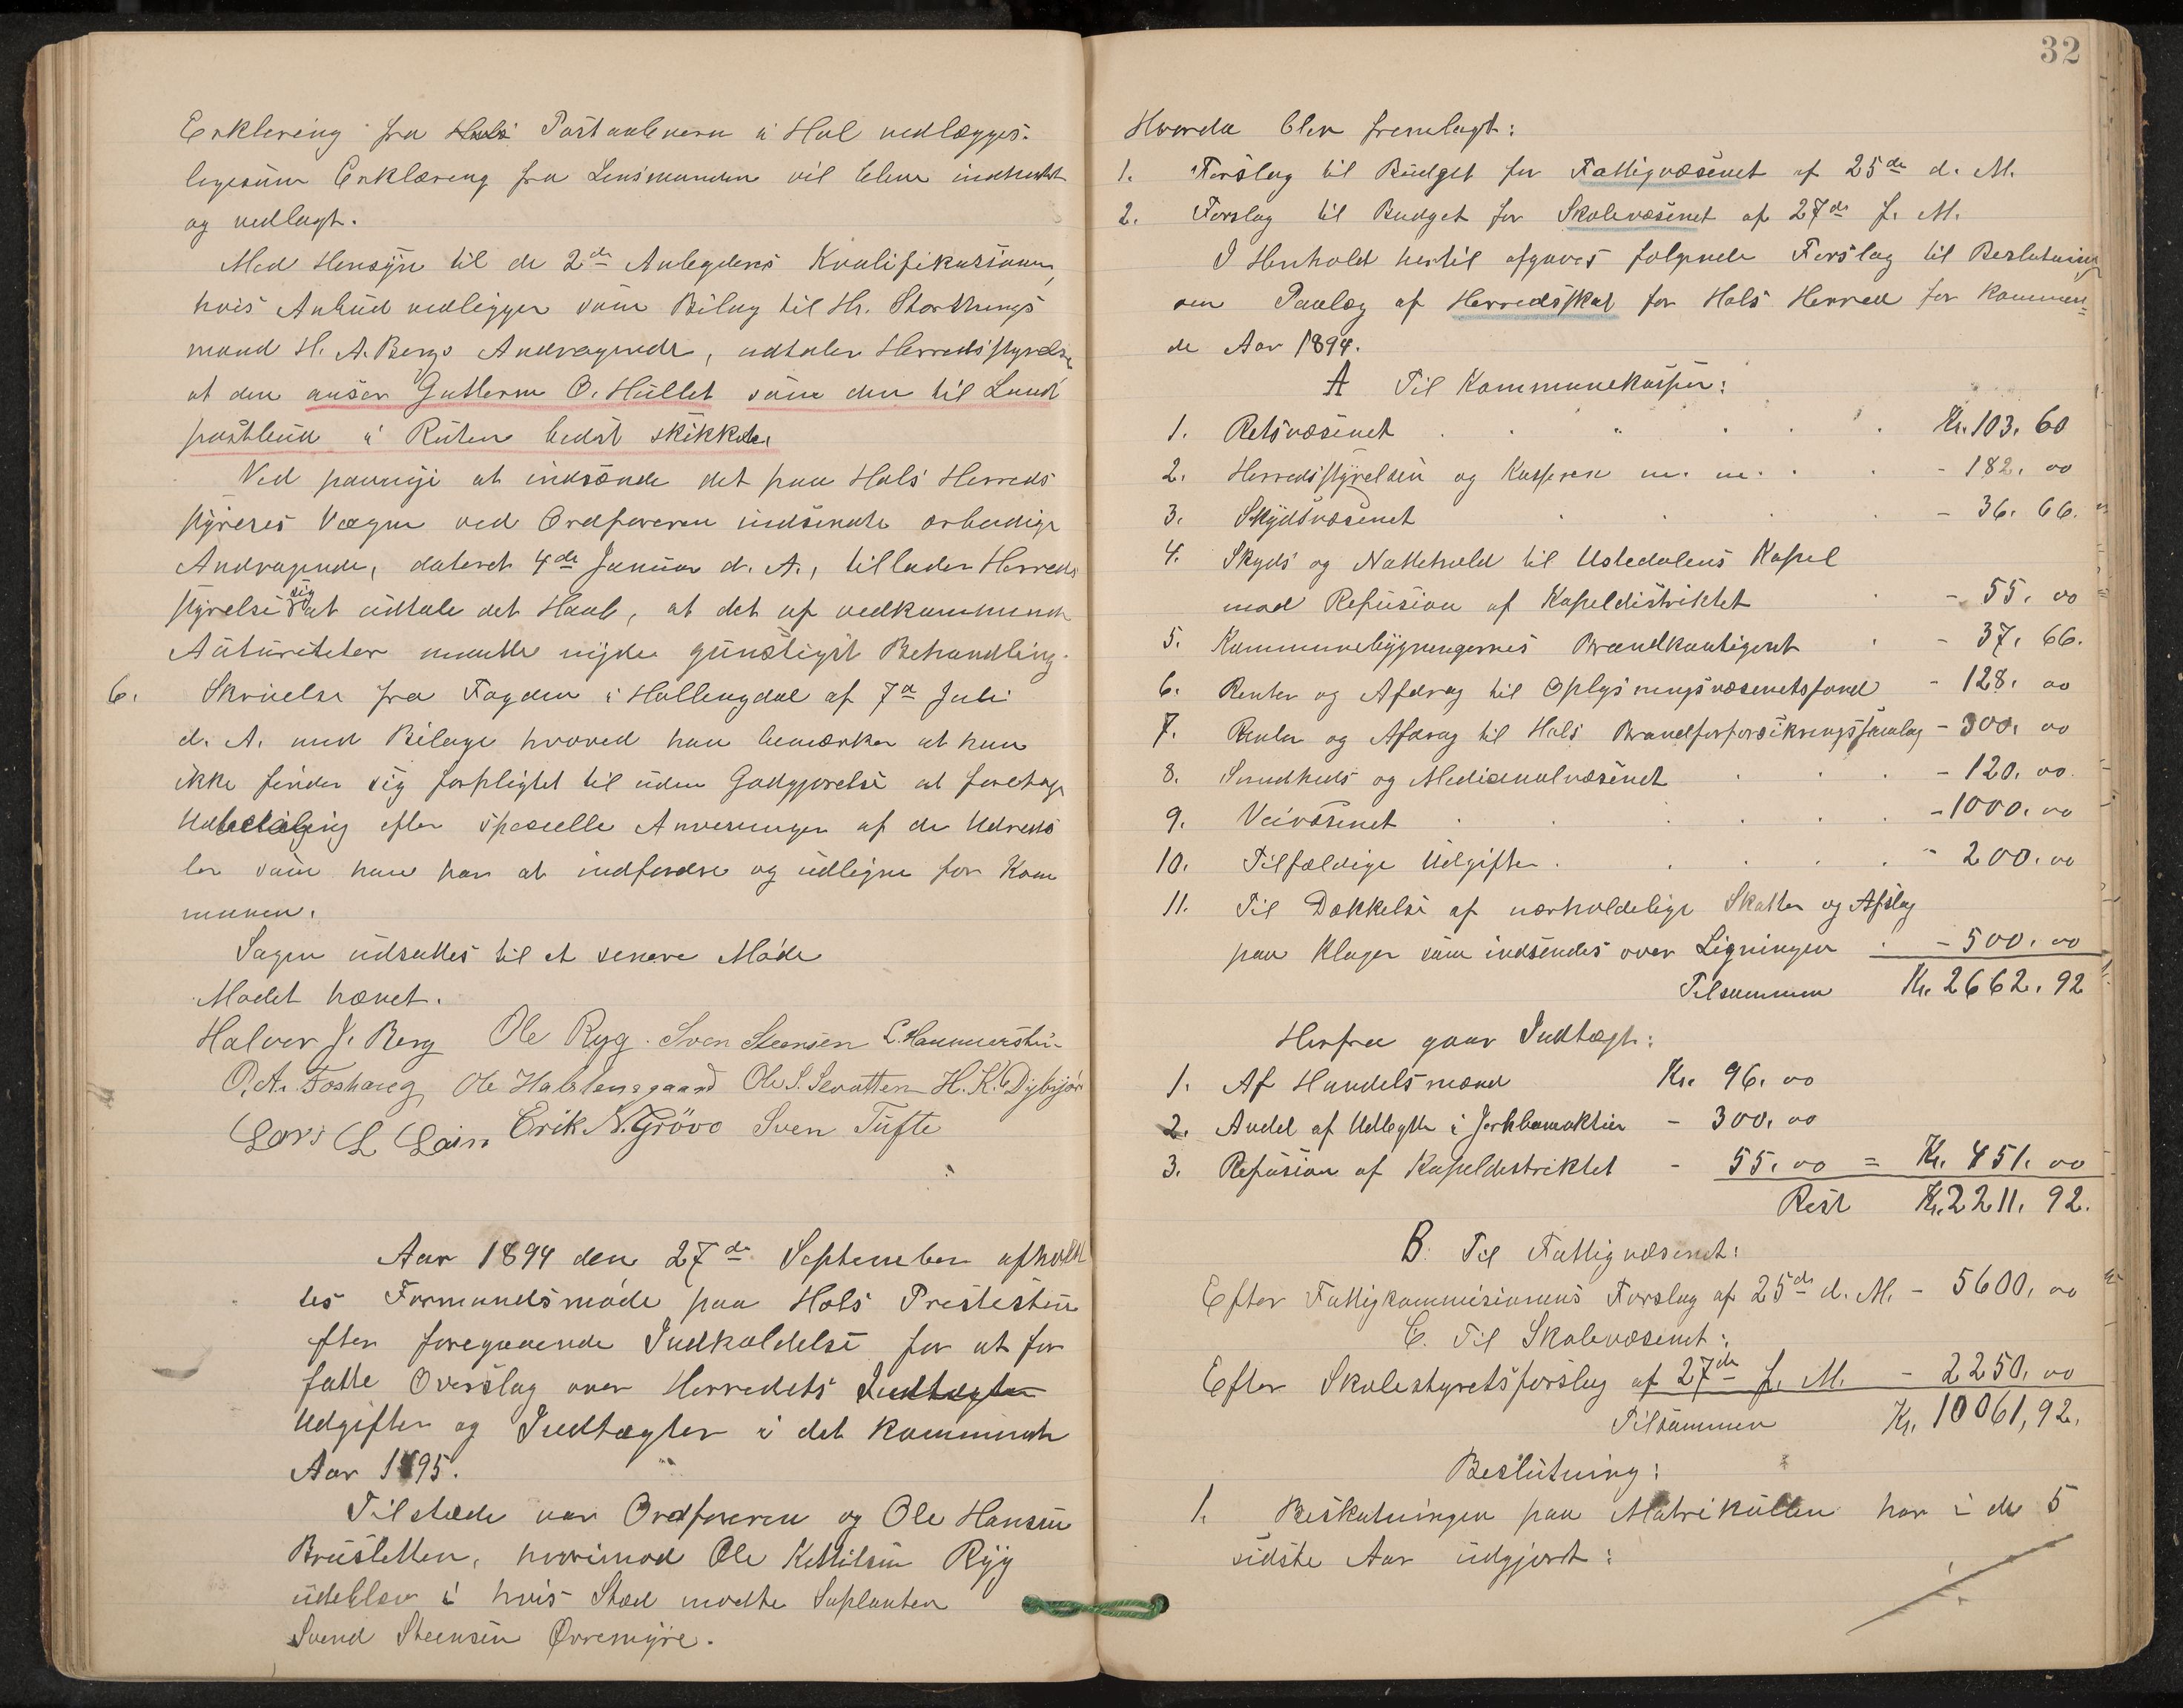 Erklering fra Hols Postaabnern i Hol vedlægges.
ligesom Erklæring fra Lensmanden vil blive indhentet
og vedlagt.
Med Hensyn til de 2de Anbyderes Kvalifikasioner,
hvis Anbud vedligger som Bilag til Hr. Storthings
mand H. A. Bergs Andragende, udtaler Herredsstyrelse
at den anser Guttorm O. Hallet som den til Land
postbud i Ruten bedst skikkede.
Ved paanyi at indsænde det paa Hols Herreds
styreses Vægne ved Ordføreren indsendte ærbødige
Andragende, dateret 4de Januar d. A., tillader Herreds
styrelse sig at udtale det Haab, at det af vedkommende
Autoriteter maatte nyde gunstigst Behandling.
6. Skrivelse fra Fogden i Hallingdal af 7de Juli
d. A. med Bilage hvorved han bemærker at han
ikke finder sig forpligtet til uden Godtgjørelse at foretage
Udbetaling efter spesielle Anvisninger af de Udreds
ler som han har at indfordre og udligne for Kom
munen.
Sagen udsattes til et senere Møde
Mødet hævet.
Halvor J. Berg Ole Ryg. Sven Steensen L. Hammersbø
O. A. Foshaug Ole Halstensgaard Ole S. Sevatten H. K. Dybsjor
Lars L Erik N. Grövo Sven Tufte
Aar 1894 den 27de September afholdt
tes Formandsmøde paa Hols Prestestue
efter foregaaende Indkaldelse for at for
fatte Overslag over Herredets Indtægter
Udgifter og Indtægter i det kommende
Aar 1895.
Tilstæde var Ordføreren og Ole Hansen
Brusletten, hvorimod Ole Kittilsen Ryg
udeblev i hvis Sted mødte Suplanten
Svend Steensen Øvremyre.
32
Hvorda blev fremlagt:
1. Forslag til Budget for Fattigvæsenet af 25de d. M.
2. Forslag til Budget for Skolevæsenet af 27de f. M.
I Henhold hertil afgaves følgende Forslag til Beslutning
om Paalæg af Herredsskat for Hols Herred for kommen=
de Aar 1894.
A Til Kommunekassen:
1. Retsvæsenet Kr. 103. 60
2. Herredsstyrelsen og Kasseren m. m. - 182. 00
3. Skydsvæsenet - 36. 66.
4. Skyds og Nattehold til Ustedalens Kapel
mod Refusion af Kapeldistriktet - 55. 00
5. Kommunebygningernes Brandkontigent - 37. 66.
6. Renter og Afdrag til Oplysningsvæsenetsfond - 128. 00
7. Renter og Afdrag til Hols Brandforforsikringssamlag - 300. 00
8. Sundheds og Medicinalvæsenet - 120. 00
9. Veivæsenet - 1000. 00
10. Tilfældige Udgifter - 200. 00
11. Til Dækkelse af uerholdelige Skatter og Afslag
paa Klager som indsendes over Ligningen - 500. 00
Tilsammen Kr. 2662. 92
Herfra gaar Indtægt:
1. Af Handelsmænd Kr. 96. 00
2. Andel af Udbytte i Jernbaneaktier - 300. 00
3. Refusion af Kapeldistriktet - 55. 00 = Kr. 451. 00
Rest Kr. 2211. 92.
B. Til Fattigvæsenet:
Efter Fattigkommisionens Forslag af 25de d. M. - 5600. 00
C. Til Skolevæsenet:
Efter Skolestyretsforslag af 27de f. M. - 2250. 00
Tilsammen Kr. 10061,92.
Beslutning:
1. Beskatningen paa Matrikullen har i de 5
sidste Aar udgjort: